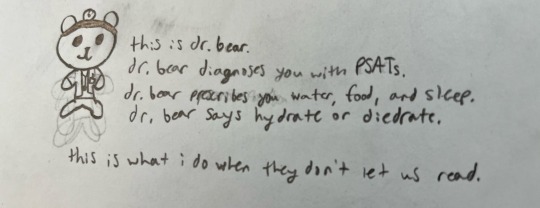 this is dr. bear.
dr. bear diagnoses you with PSATs.
dr. bear prescribes you water, food, and sleep.
dr. bear says hydrate or diedrate.
this is what i do when they don't let us read.